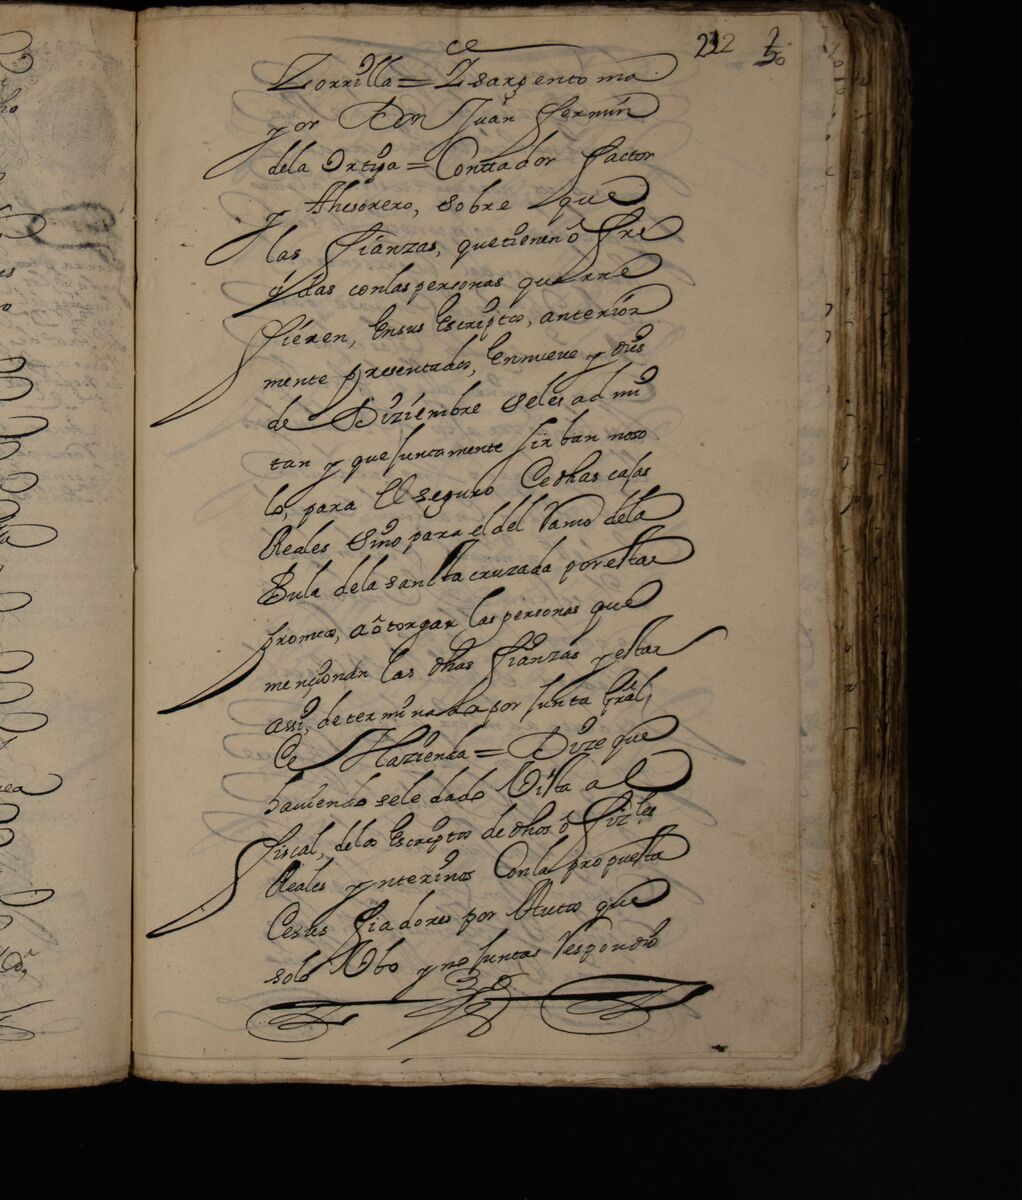 212
Zorrilla = Y sargento ma
yor Don Juan fermin
dela = Contador factor
y Thesorero, sobre que
las fianzas, quetienen ofre
çidas conlas personas que rre
fieren, Ensus Escriptos, anterior
mente presentados, Ennueve y dies
de Diziembre seles admi
tan y que juntamente sirban noso
lo, para El seguro De dhas cajas
Reales sino para el del Ramo dela
Bula dela sancta cruzada por estar
promtos, aôtorgar las personas que
mençionan las dhas fianzas y estar
assi, determinado por junta Gral,
De Hazienda = Dize que
haviendosele dado Vista a el
fiscal, delos Escriptos de dhos ôfiz.les
Reales ynterinos Conla propuesta
Desus fiadores por Autos que
solo Vbo y no juntas Respondio